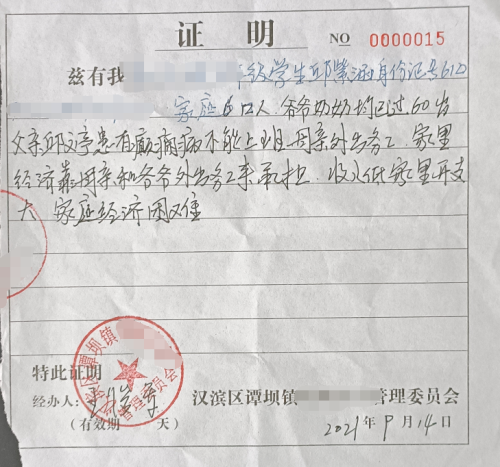 证 明
NO 0000015
兹有我 年级学生邱紫涵身份证号610
家庭6口人.爷爷奶奶均已过60岁
父亲邱文亭患有癫痫病不能上班.母亲外出务工.家里
经济靠母亲和爷爷外出务工来承担.收入低家里开支
大.家庭经济困难
特此证明
经办人:
(有效期 天)
汉滨区谭坝镇 管理委员会
2021年9月14日
汉滨区谭坝镇
管理委员会